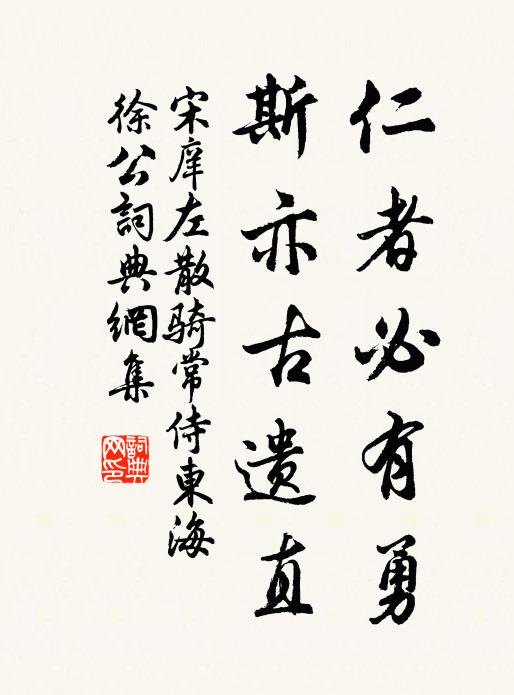 仁者必有勇
斯亦古遗直
宋庠左散骑常侍東海
徐公詞典網集
詞典
网印